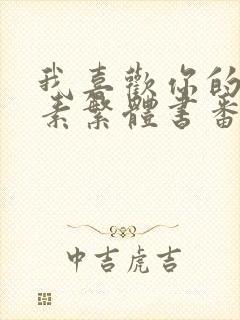 我喜歡你的
素繁體書番
中吉虎吉